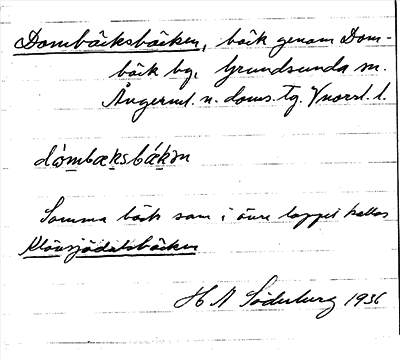 Dombäcksbäcken, bäck genom Dom-
bäck bg, Grundsunda sn.
Ångerml. n. doms. tg. Vnorrl. l.
dòmbæksbǽkən
Samma bäck som i övre loppet kallas
Klövsjödalsbäcken
H N Söderberg 1936